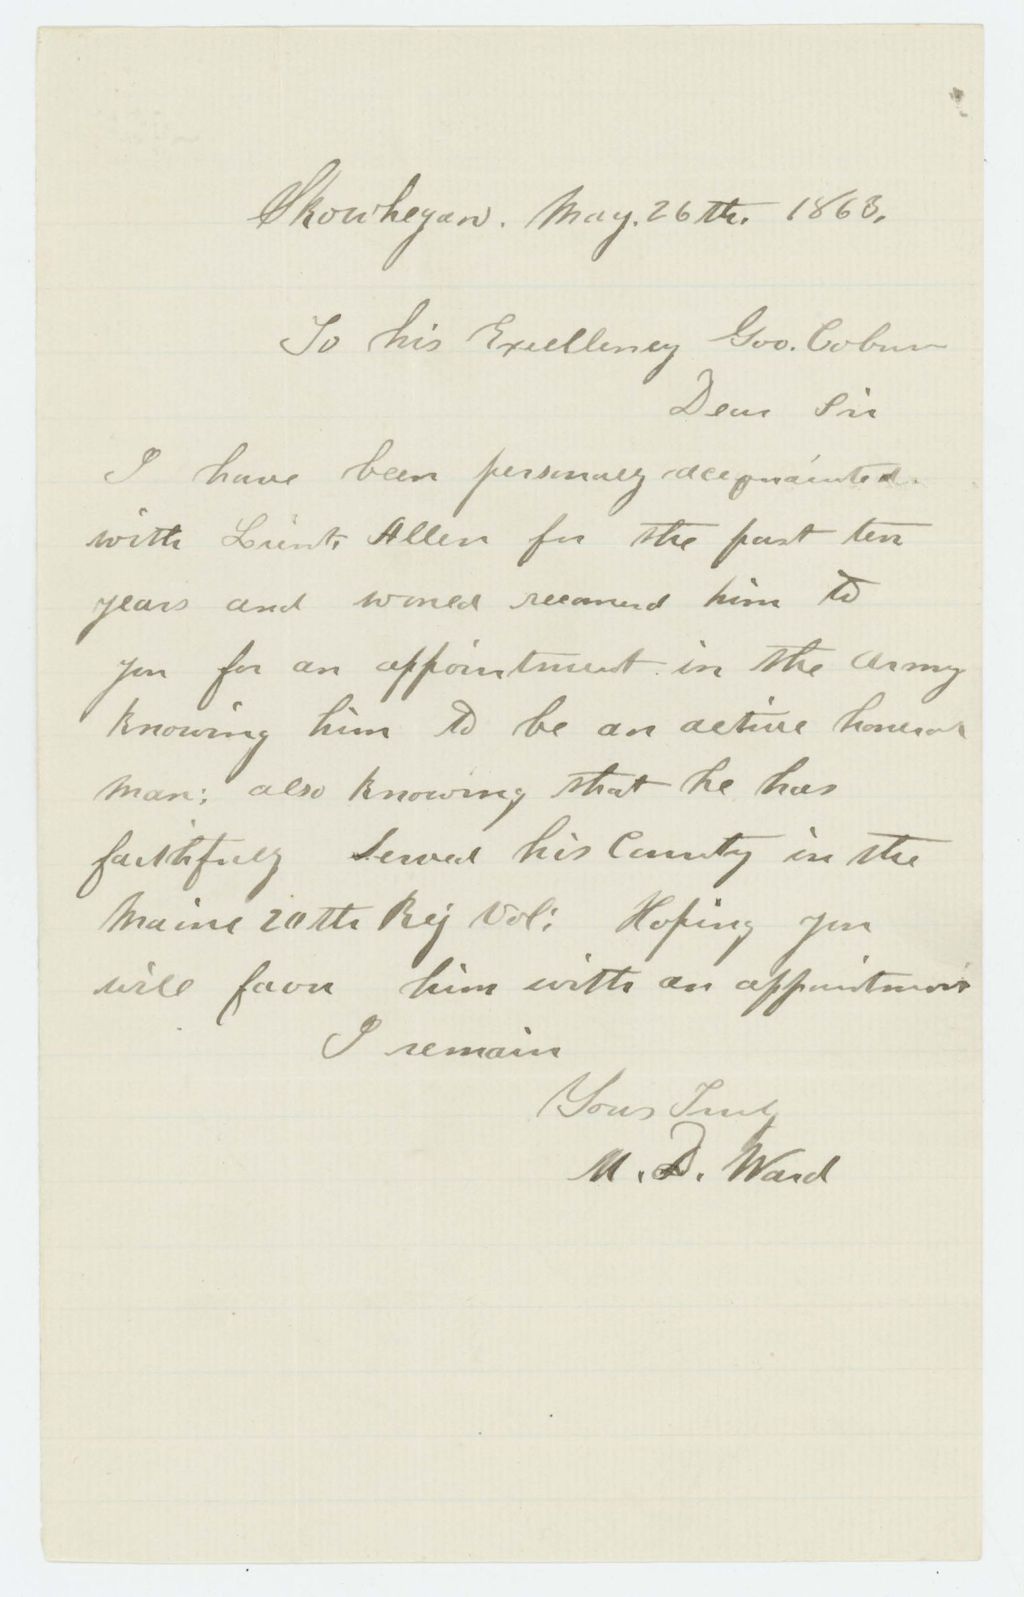 Skowhegan. May. 26th. 1863.
To his Excellency Gov. Coburn
Dear Sir
I have been personaly acequainted
with Lieut. Allen for the past ten
years and would recomend him to
you for an appointment in the Army
knowing him to be an active
man; also knowing that he has
faithfuly Served his Country in the
Maine 20th Reg Vol; Hoping you
will favor him with an appointment
I remain
Yours Truly
M. D. Ward